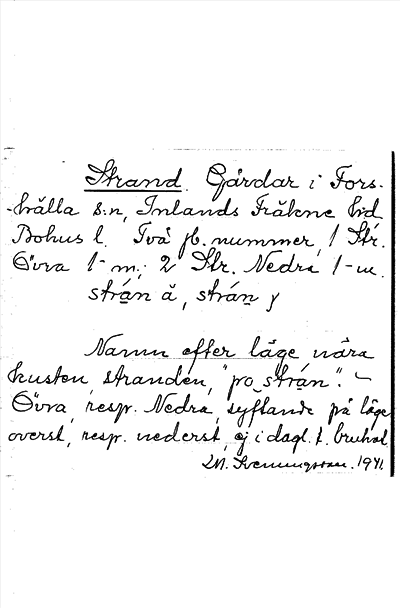 Strand. Gårdar i Fors-
-hälla s:n, Inlands Fräkne hd
Bohus l. Två jb. nummer, 1 Str.
Övra 1 m.; 2 Str. Nedra 1 m.
strán å, strán y
Namn efter läge nära
kusten, stranden, "po strán". -
Övra, resp. Nedra, syftande på läge
överst, resp. nederst, ej i dagl. t. brukat
M. Svenungsson. 1941.